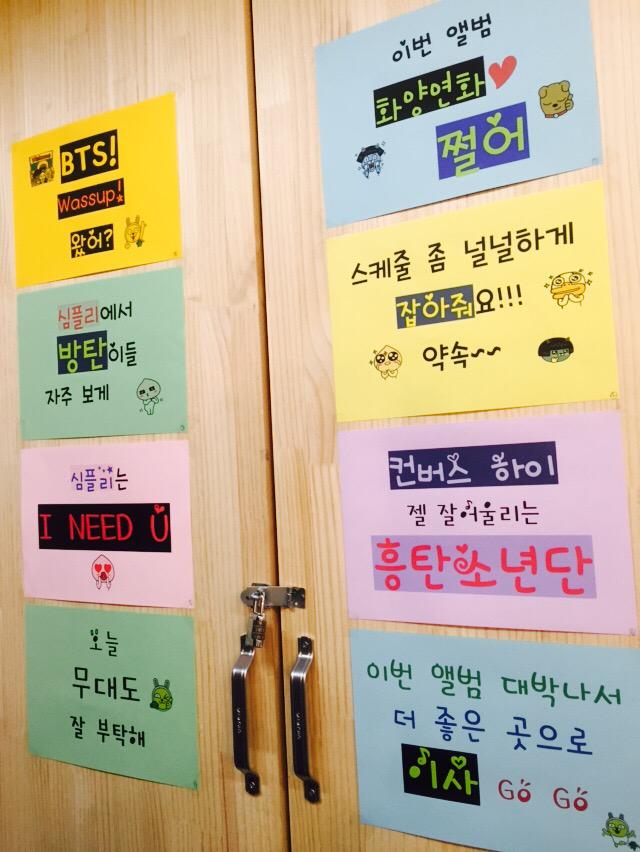 BTS!
Wassup!
왔어?
심플리에서
방탄이들
자주 보게
심플리는
I NEED U
오늘
무대도
잘 부탁해
이번 앨범
화양연화
쩔어
스케줄 좀 널널하게
잡아줘요!!!
약속~~
컨버스 하이
젤 잘어울리는
흥탄소년단
이번 앨범 대박나서
더 좋은 곳으로
이사 GO GO